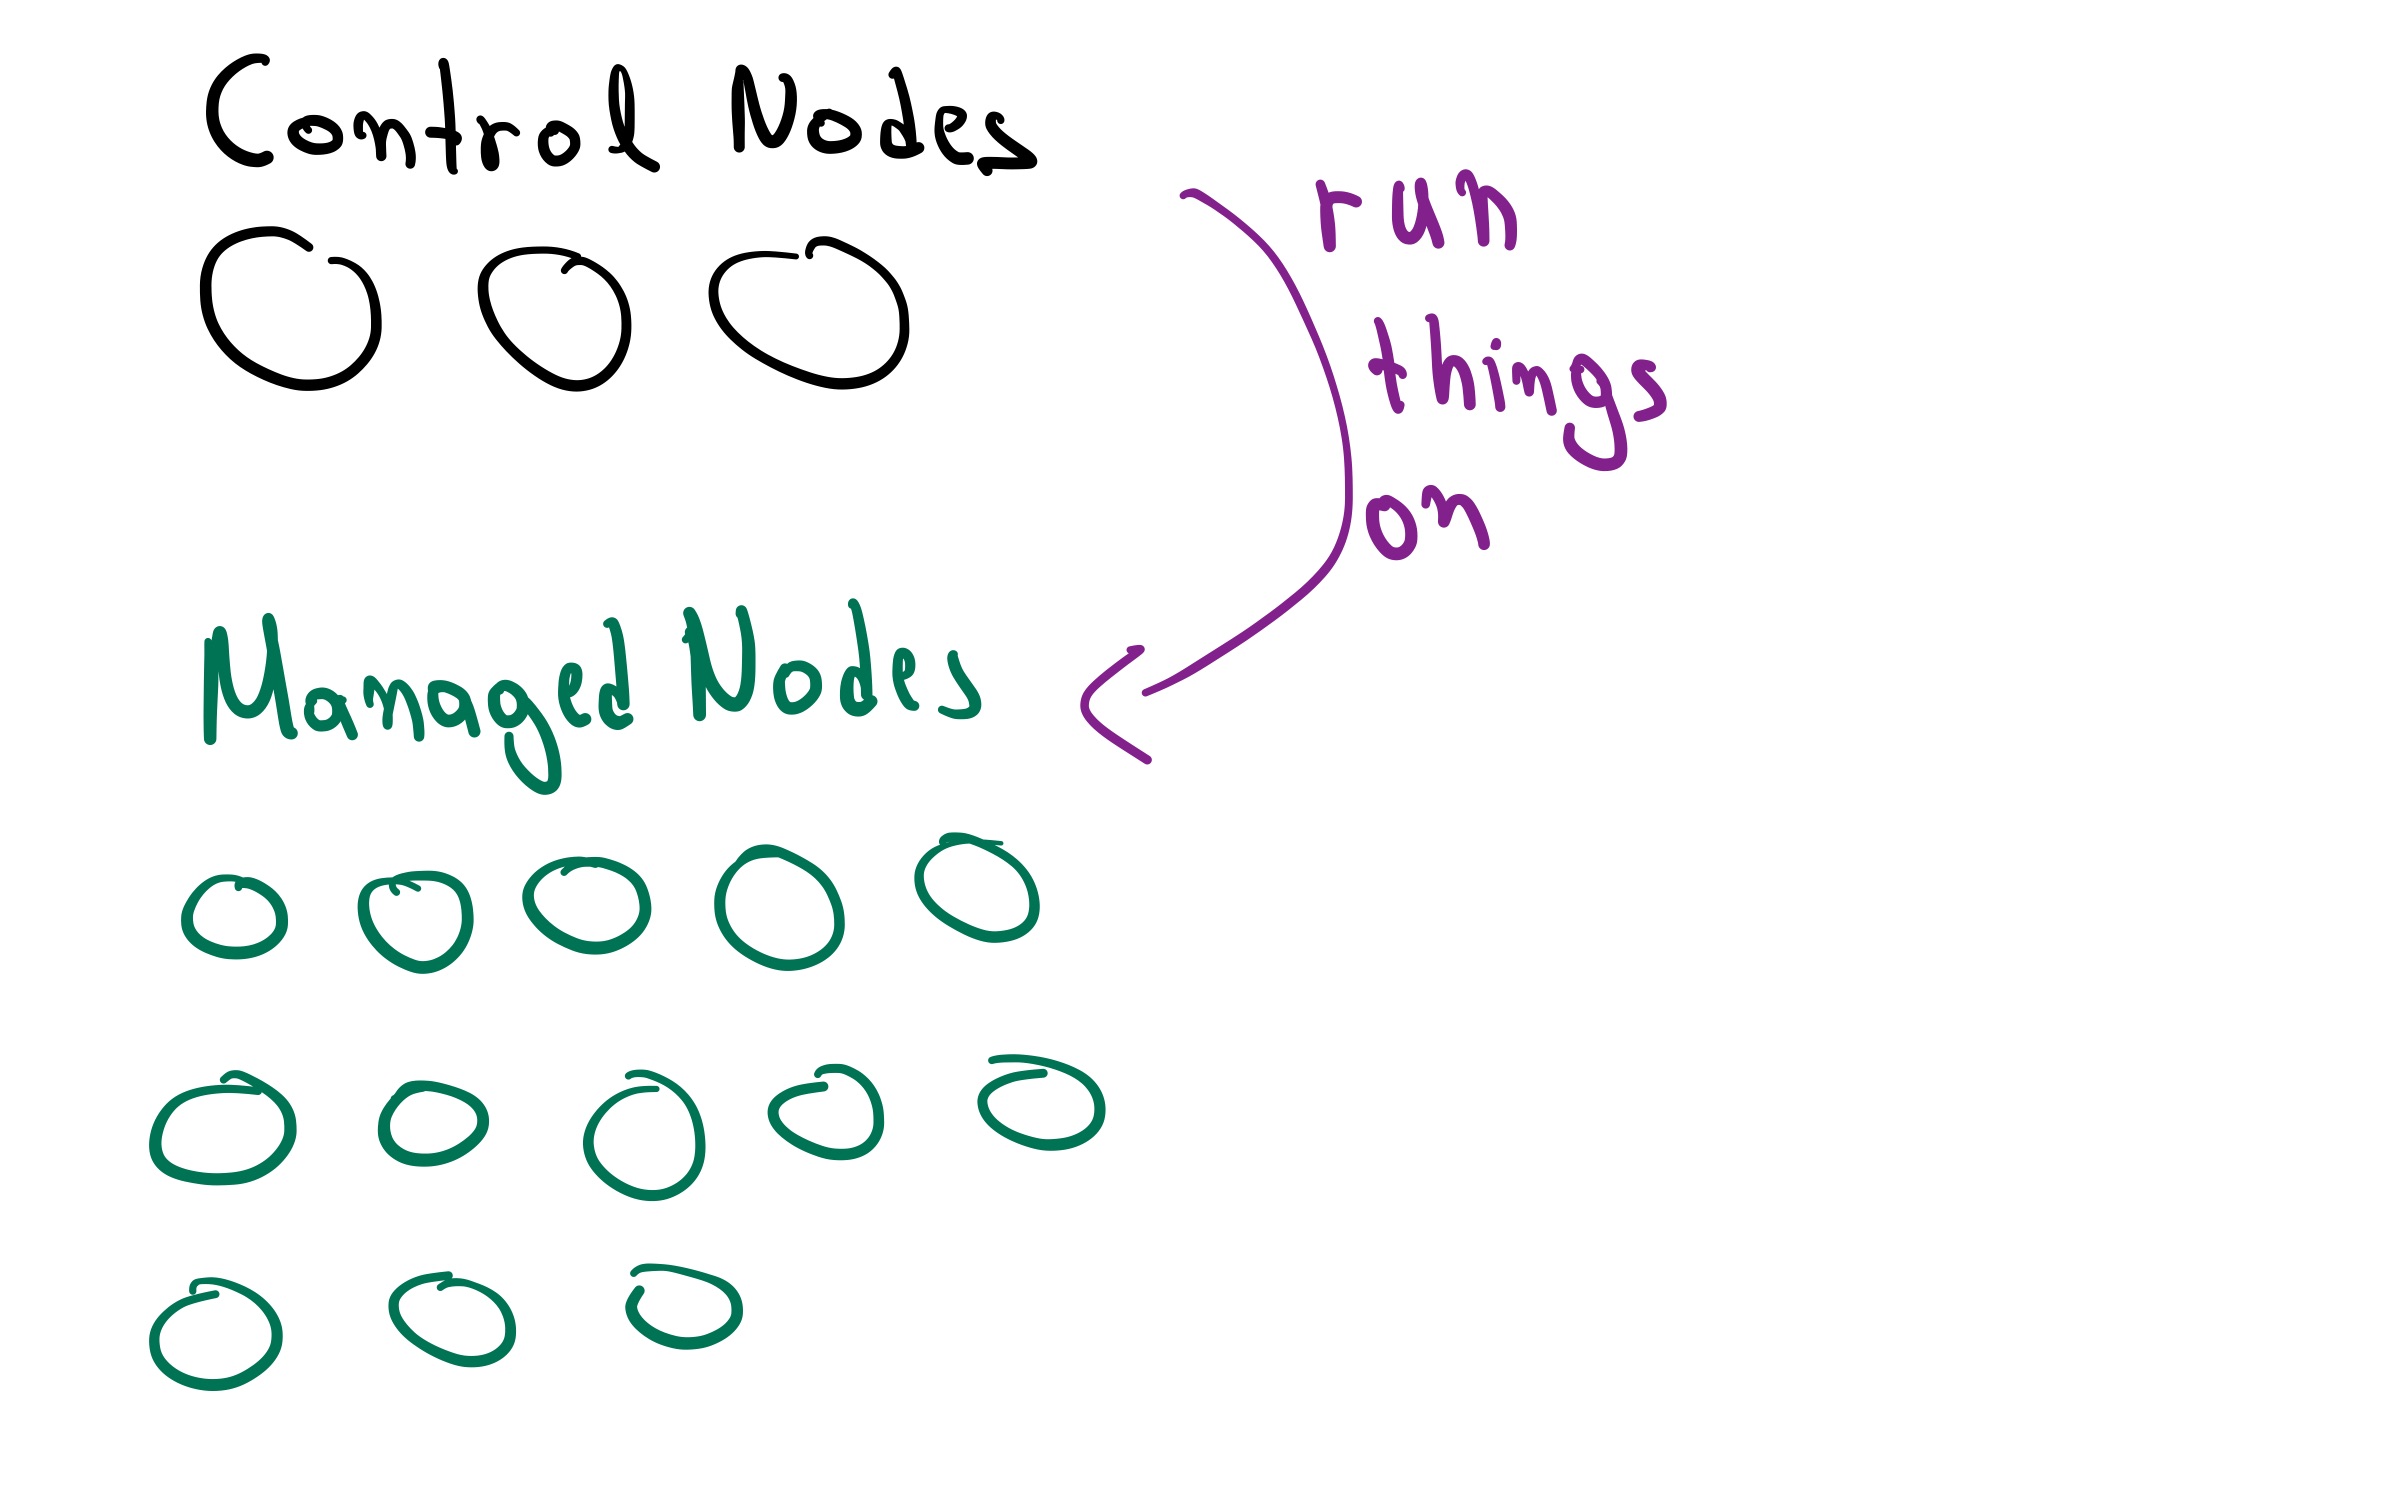 Control Nodes
run
things
on
Managed Nodes